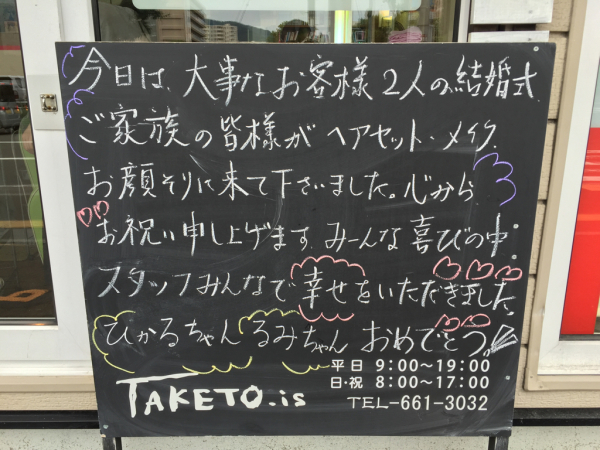 今日は、大事なお客様2人の結婚式
ご家族の皆様がヘアセット・メイク、
お顔そりに来て下さいました。心から
お祝い申し上げます。みーんな喜びの中、
スタッフみんなで幸せをいただきました。
ひかるちゃん るみちゃん おめでとう!
平日 9:00～19:00
日・祝 8:00～17:00
TAKETO.is
TEL-661-3032